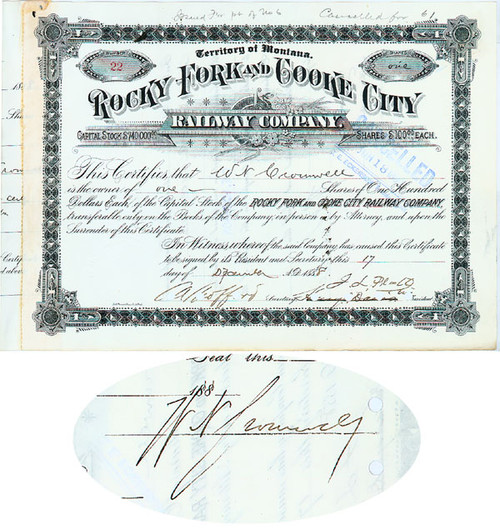 Issued for pt of No 6 Cancelled for # 1
Territory of Montana.
22
one
ROCKY FORK AND COOKE CITY
RAILWAY COMPANY.
CAPITAL STOCK $740,000.
SHARES $100.00 EACH.
CANCELLED
This Certifies that W. N. Cromwell
is the owner of one Shares of One Hundred
Dollars Each, of the Capital Stock of the ROCKY FORK AND COOKE CITY RAILWAY COMPANY,
transferable only on the Books of the Company, in person or by Attorney, and upon the
Surrender of this Certificate.
In Witness whereof the said Company has caused this Certificate
to be signed by its President and Secretary this 17
day of December 1888.
Secretary President
Seal this
188
W N Cromwell